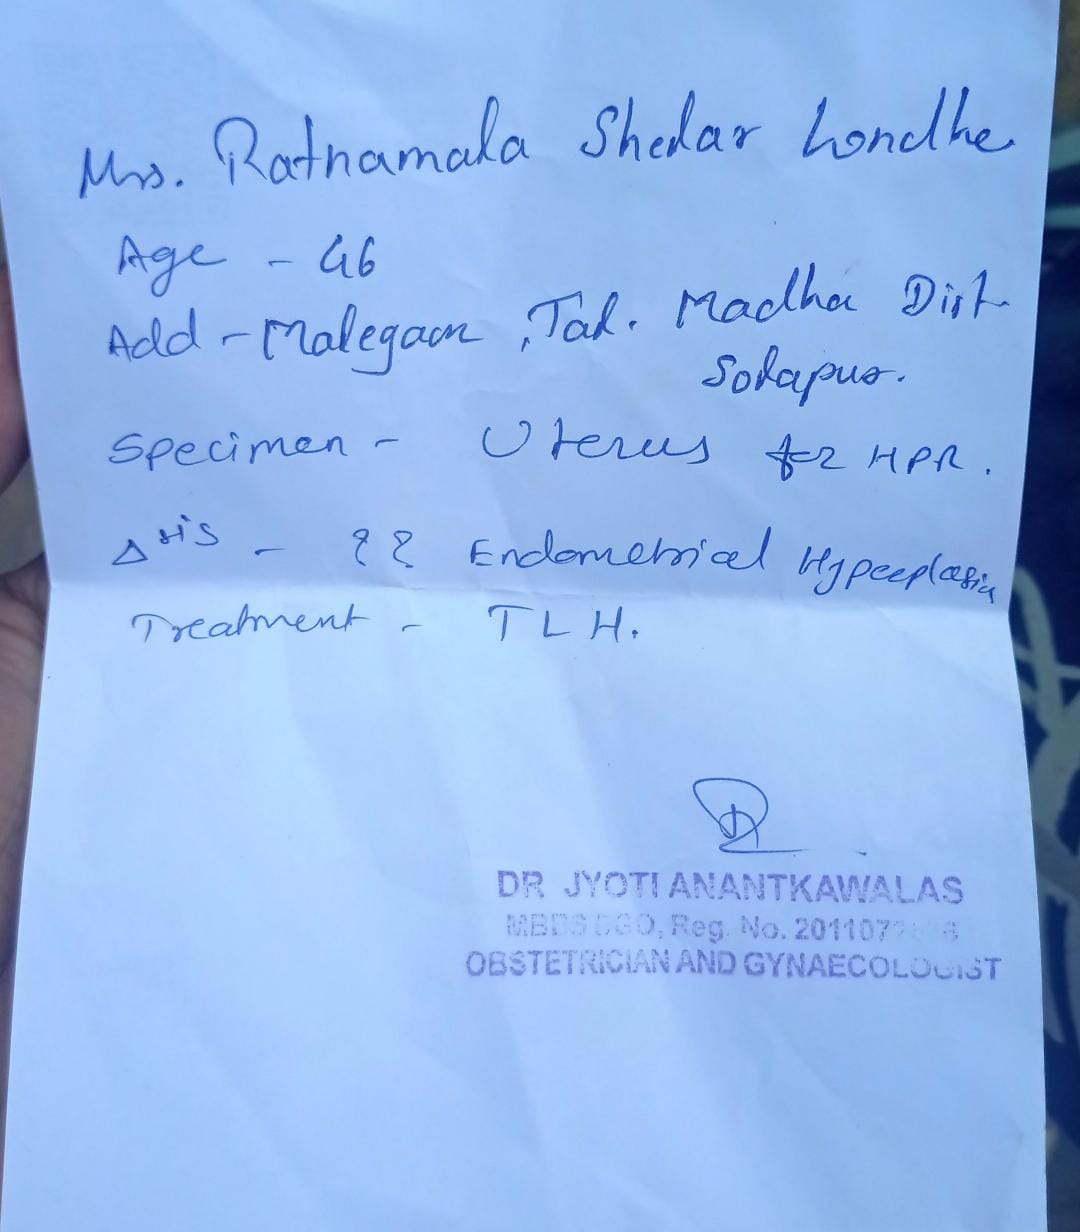 Mrs. Ratnamala Shedar Londhe
Age - 46
Add - Malegaon, Tal. Madha Dist
Solapur.
Specimen - Uterus for HPR.
Δsis - ?? Endometrial Hyperplasia
Treatment - TLH.
DR JYOTI ANANTKAWALAS
MBBS DGO, Reg. No.
OBSTETRICIAN AND GYNAECOLOGIST